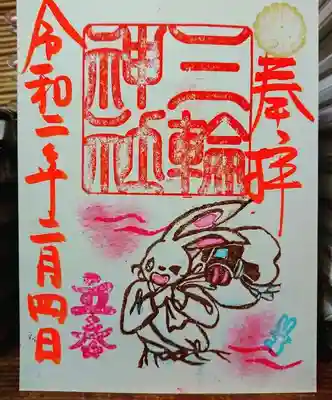 奉拝
三輪
神社
令和二年二月四日
立春